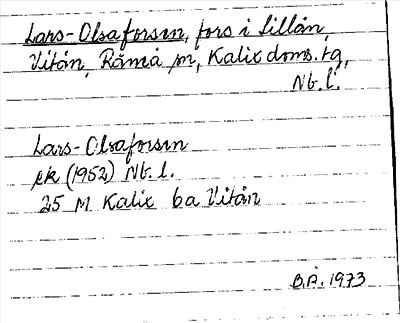 Lars-Olsaforsen, fors i Lillån,
Vitån, Råneå sn, Kalix doms. tg,
Nb. l.
Lars-Olsaforsen
ek (1952) Nb. l.
25 M Kalix 6a Vitån
B.Å. 1973